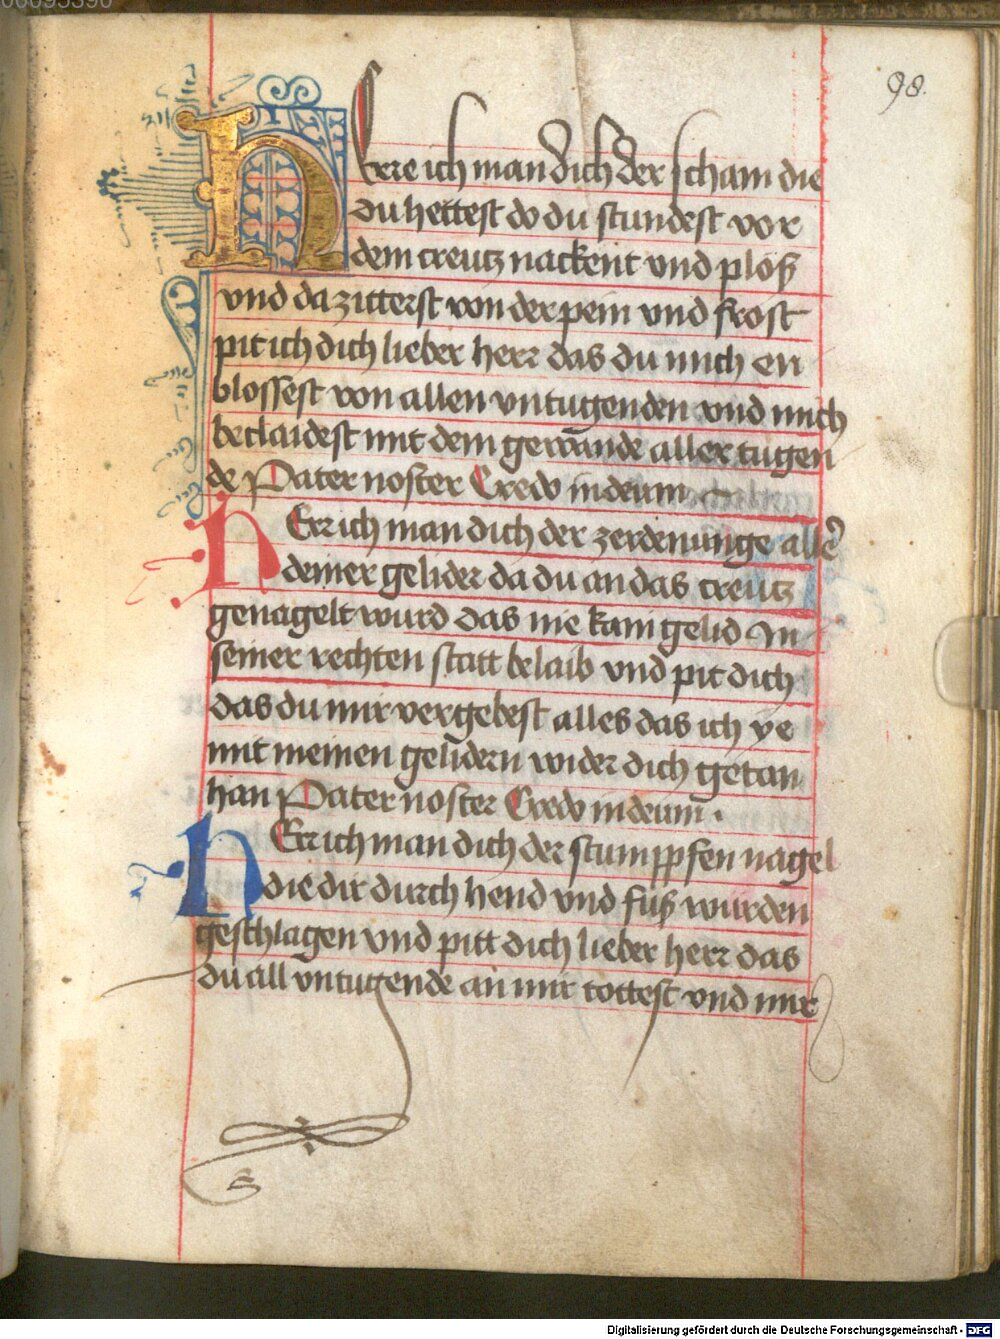 98.
HErre ich man dich der scham die
du hettest do du stundest vor
dem creutz nackent vnd ploß
vnd da zitterst von der pein vnd frost
pit ich dich lieber herr das du mich en
blossest von allen vntugenden vnd mich
beclaidest mit dem gewande aller tugen
de Pater noster Credo in deum
HErr ich man dich der zerdenunge aller
deiner gelider da du an das creutz
genagelt wurd das nie kain gelid In
seiner rechten statt belaib vnd pit dich
das du mir vergebest alles das ich ye
mit meinen gelidern wider dich getan
han Pater noster Credo in deum .
HErr ich man dich der stumppfen nagel
die dir durch hend vnd füß wurden
geschlagen vnd pitt dich lieber herr das
du all vntugende an mir tottest vnd mir
Digitalisierung gefördert durch die Deutsche Forschungsgemeinschaft - DFG